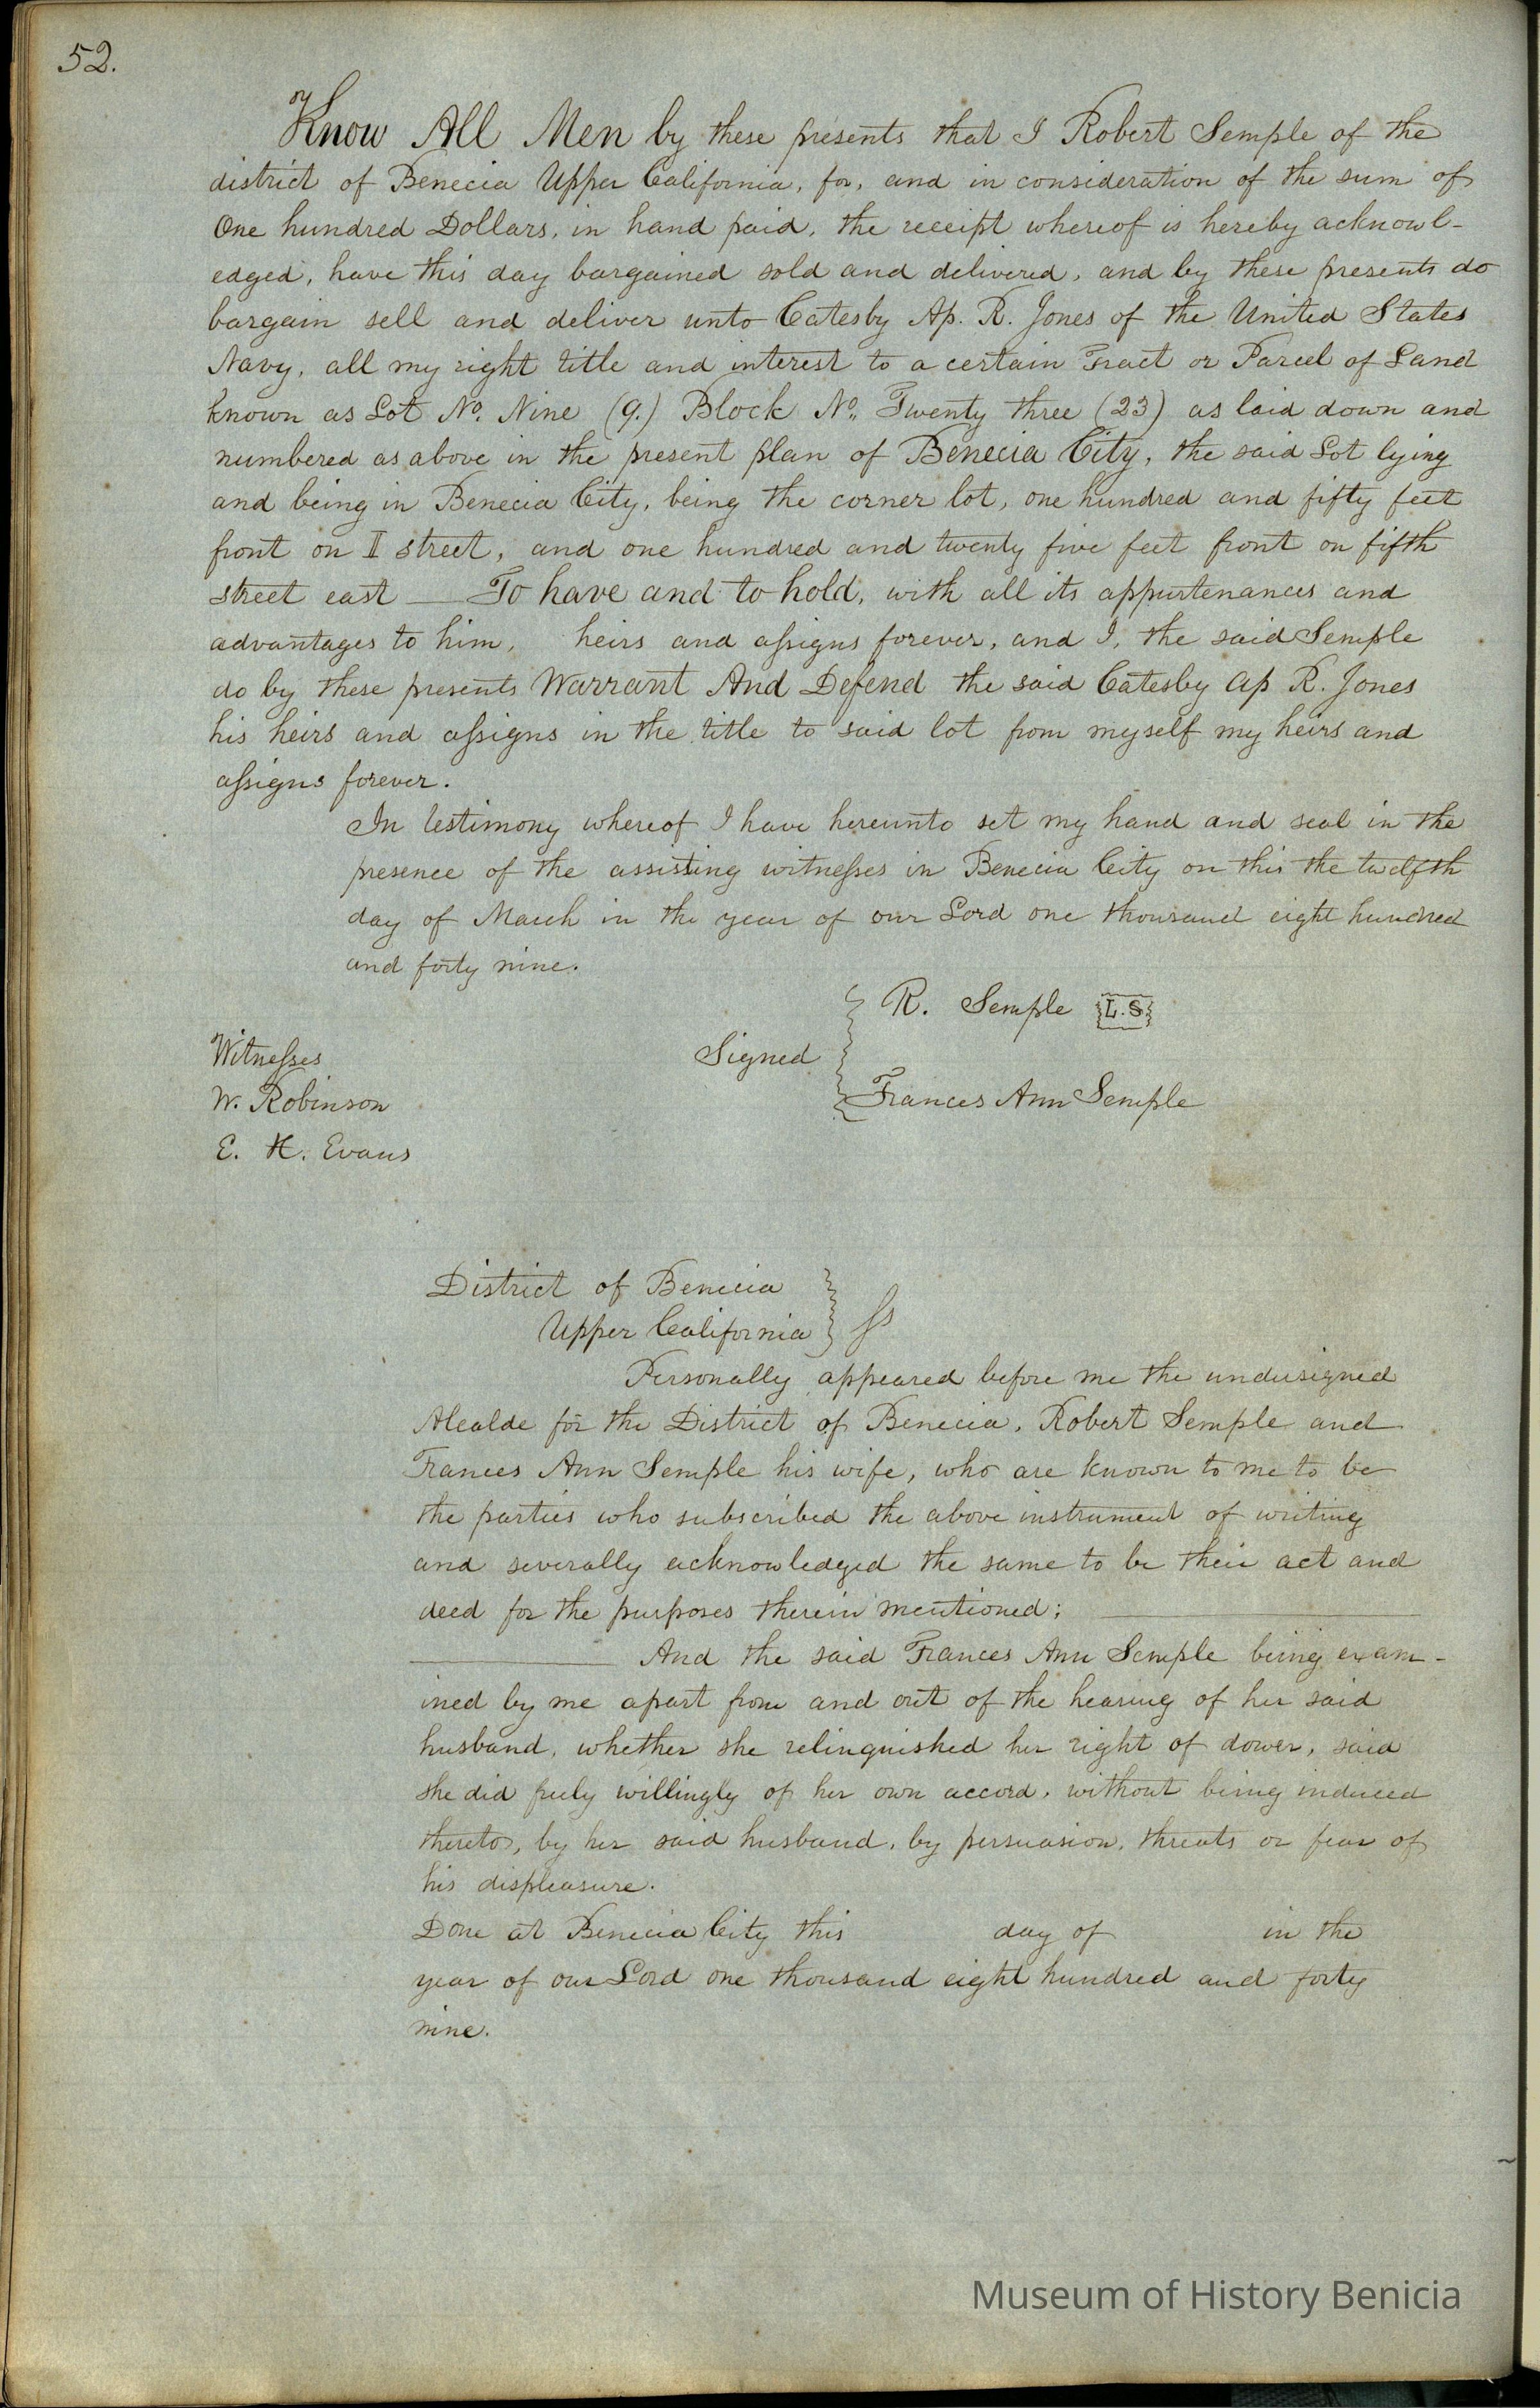 52.
Know All Men by these presents that I Robert Semple of the
district of Benecia Upper California, for, and in consideration of the sum of
One hundred Dollars, in hand paid, the receipt whereof is hereby acknowl-
edged, have this day bargained sold and delivered, and by these presents do
bargain sell and deliver unto Catesby Ap. R. Jones of the United States
Navy, all my right title and interest to a certain Tract or Parcel of Land
known as Lot No. Nine (9.) Block No. Twenty three (23) as laid down and
numbered as above in the present plan of Benecia City, the said Lot lying
and being in Benecia City, being the corner lot, one hundred and fifty feet
front on I street, and one hundred and twenty five feet front on fifth
street east — To have and to hold, with all its appurtenances and
advantages to him, heirs and assigns forever, and I, the said Semple
do by these presents Warrant And Defend the said Catesby ap R. Jones
his heirs and assigns in the title to said lot from myself my heirs and
assigns forever.
In testimony whereof I have hereunto set my hand and seal in the
presence of the assisting witnesses in Benecia City on this the twelfth
day of March in the year of our Lord one thousand eight hundred
and forty nine.
R. Semple L.S.
Witnesses
Signed
W. Robinson
Frances Ann Semple
E. H. Evans
District of Benecia
Upper California } ss
Personally appeared before me the undersigned
Alcalde for the District of Benecia, Robert Semple and
Frances Ann Semple his wife, who are known to me to be
the parties who subscribed the above instrument of writing
and severally acknowledged the same to be their act and
deed for the purposes therein mentioned;
And the said Frances Ann Semple being exam-
ined by me apart from and out of the hearing of her said
husband, whether she relinquished her right of dower, said
she did freely willingly of her own accord, without being induced
thereto, by her said husband, by persuasion, threats or fear of
his displeasure.
Done at Benecia City this day of in the
year of our Lord one thousand eight hundred and forty
nine.
Museum of History Benicia